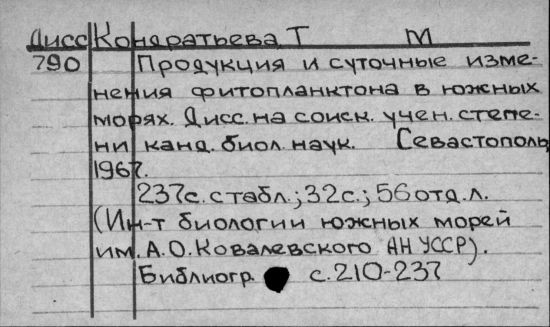 Дисс Кондратьева Т М
790 Продукция и суточные изме-
нения фитопланктона в южных
морях. Дисс. на соиск. учен. степе-
ни канд. биол. наук. Севастополь,
1967.
237с. с табл.; 32с.; 56 отд. л.
(Ин-т биологии южных морей
им. А.О. Ковалевского АН УССР).
Библиогр. с. 210-237